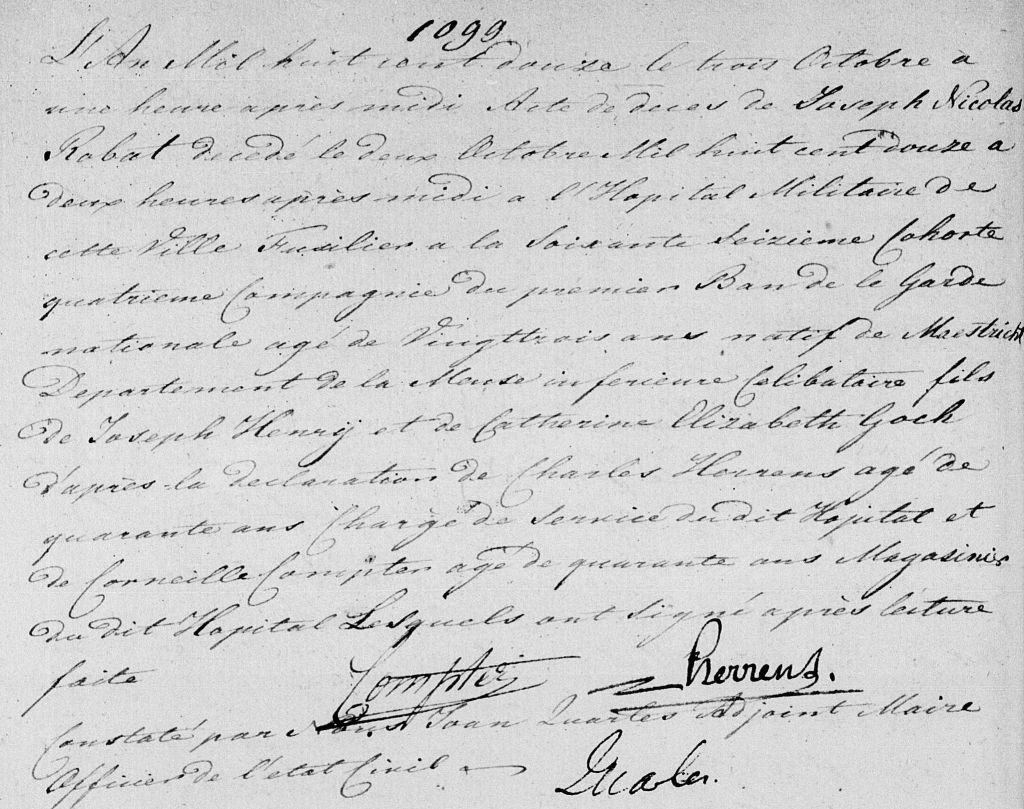 1099
L'An Mil huit cent douze le trois Octobre a
une heure après midi Acte de deces de Joseph Nicolas
Robat decedé le deux Octobre Mil huit cent douze a
deux heures après midi a l'Hopital Militaire de
cette Ville Fusilier a la Soixante Seizieme Cohorte
quatrieme Compagnie du premier Ban de le Garde
nationale agé de Vingttrois ans natif de Maestricht
Departement de la Meuse inferieure Celibataire fils
de Joseph Henry et de Catherine Elizabeth Goch
d'après la declaration de Charles Herrens agé de
quarante ans Chargé de Service du dit Hopital et
de Corneille Compter agé de quarante ans Magasinier
du dit Hopital Lesquels ont signé après lecture
faite Compter Herrens.
Constaté par Nous Joan Quarles Adjoint Maire
Officier de l'etat Civil Quarles.